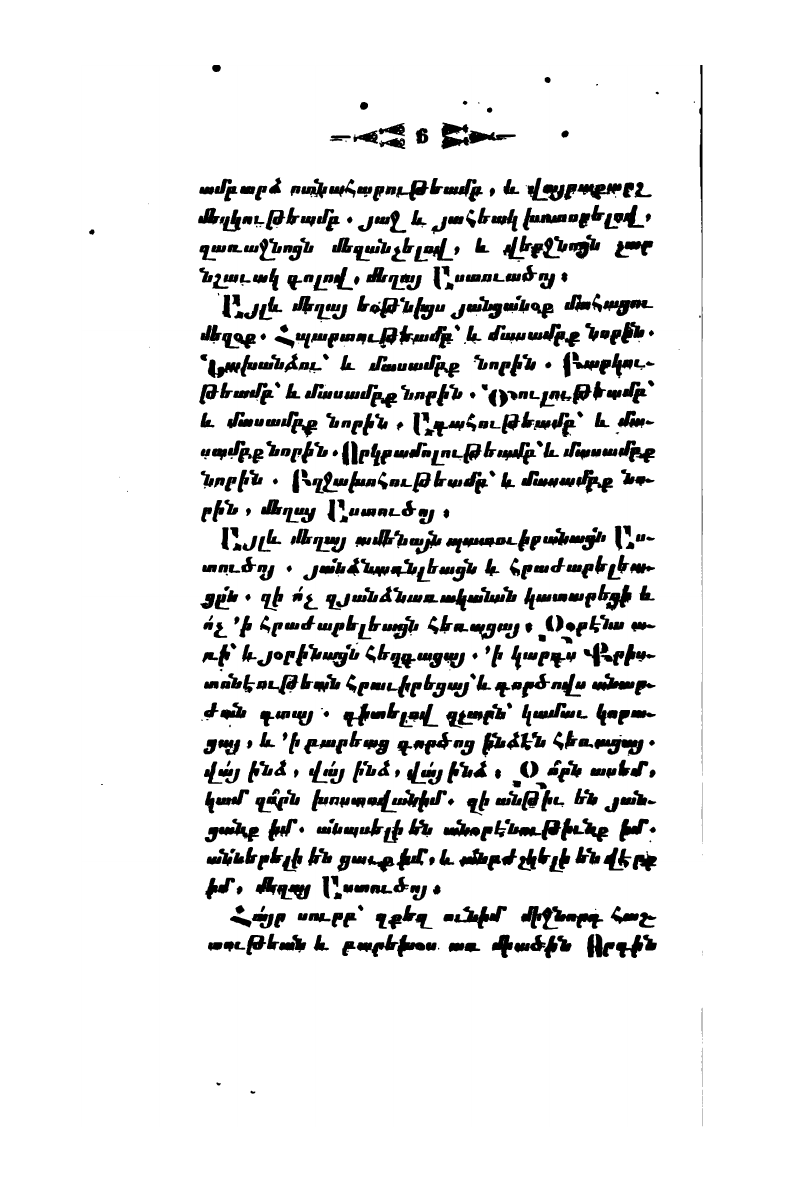 6
ամբարձ ոտնահարութեամբ, և վայրաքարշ
մեղկութեամբ. յաջ և յահեակ խոտորելով,
զառաջնոցն մեզանչելով, և վերջնոցն չար
նշաւակ գոլով, մեղայ Աստուածոյ։
Այլև մեղայ եօթնիցս յանցանօք մահացու
մեղօք. Հպարտութեամբ՝ և մասամբք նորին.
Նախանձու՝ և մասամբք նորին. Բարկու-
թեամբ՝ և մասամբք նորին. Ծուլութեամբ՝
և մասամբք նորին. Ագահութեամբ՝ և մա-
սամբք նորին. Որկրամոլութեամբ՝ և մասամբք
նորին. Բղջախոհութեամբ՝ և մասամբք նո-
րին, մեղայ Աստուծոյ։
Այլև մեղայ ամենայն պատուիրանացն Աս-
տուծոյ. յանձնառնլեացն և հրաժարելեա-
ցըն. զի ո՛չ զյանձնառականան կատարեցի և
ո՛չ ՚ի հրաժարելեացն հեռացայ։ Օօրէնս ա-
ռի՝ և յօրինացն հեղգացայ. ՚ի կարգս Քրիս-
տոնէութեան հրաւիրեցայ՝ և գործովս անար-
ժան գտայ. գիտելով զչարն՝ կամաւ կորա-
ցայ, և ՚ի բարեաց գործոց ինձէն հեռացայ.
վա՜յ ինձ, վա՜յ ինձ, վա՜յ ինձ։ Զո՞րն ասեմ,
կամ զո՞րն խոստովանիմ. զի անթիւ են յան-
ցանք իմ. անասելի են անօրէնութիւնք իմ.
աններելի են ցաւք իմ, և անբժշկելի են վէրք
իմ, մեղայ Աստուծոյ։
Հա՛յր սուրբ՝ զքեզ ունիմ միջնորդ հաշ-
տութեան և բարեխօս առ միածին Որդին